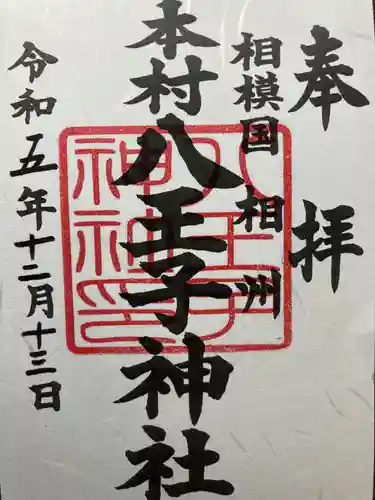 奉拝
相模国 相州
本村八王子神社
令和五年十二月十三日
八王子神社印